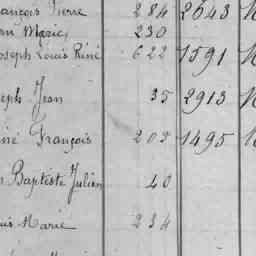 ançois Pierre 284 2643
an Marie 230
oseph Louis Réné 622 1591
seph Jean 35 2913
éné François 203 1495
n Baptiste Julien 40
uis Marie 234